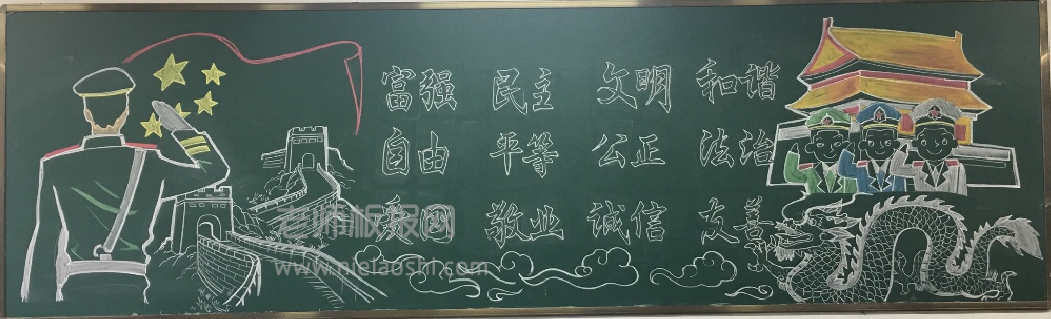 富强 民主 文明 和谐
自由 平等 公正 法治
爱国 敬业 诚信 友善
老师板报网
www.nielaoshi.com